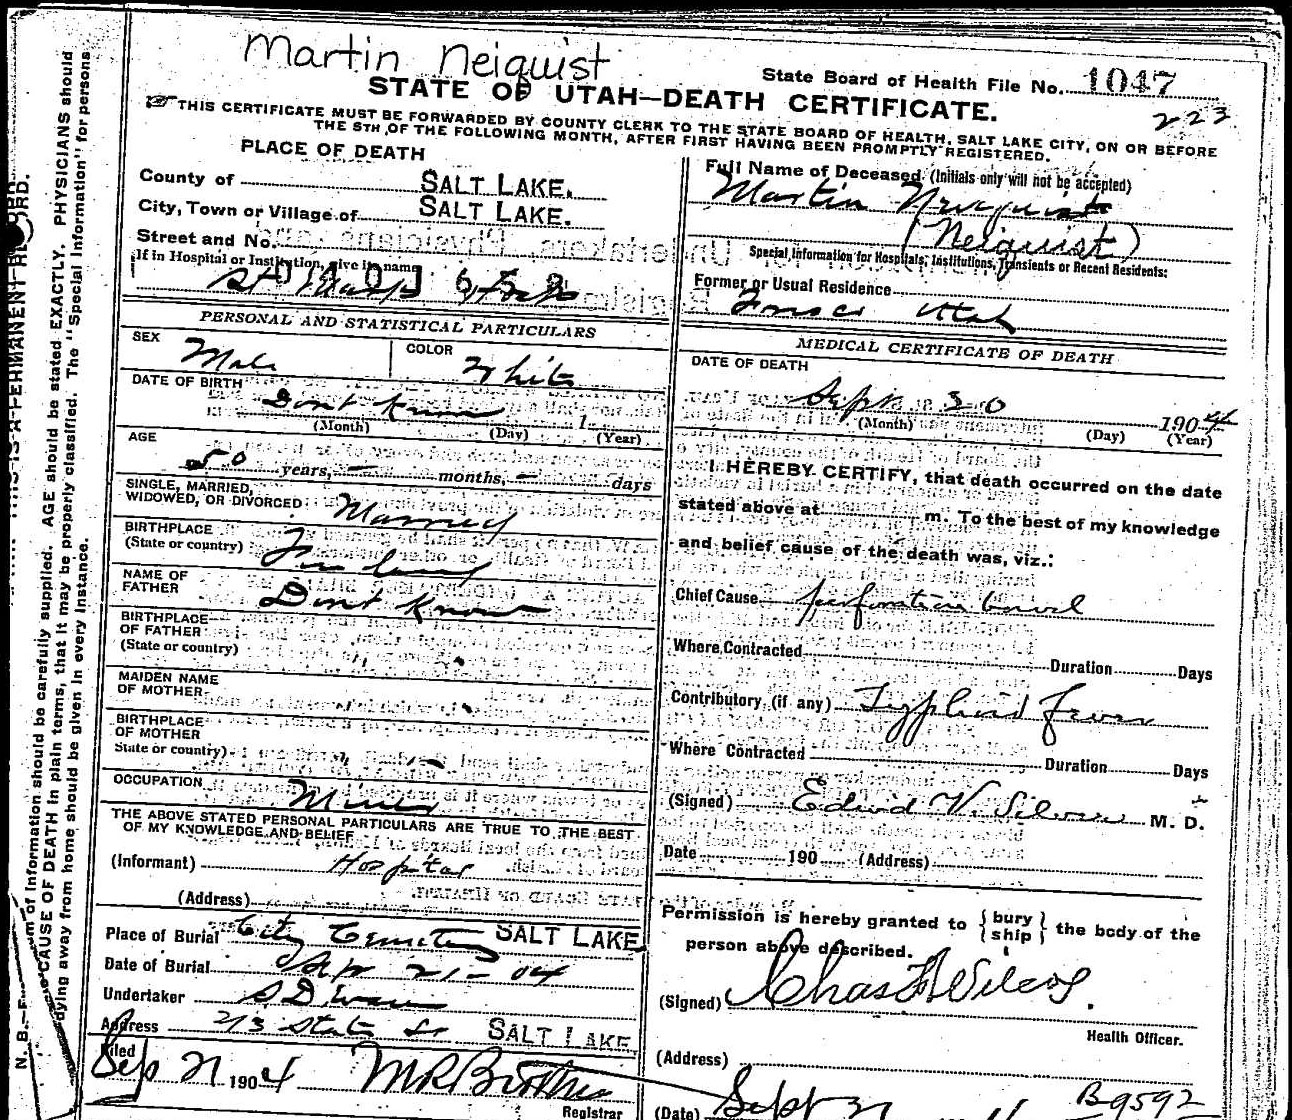 Martin Neiquist
State Board of Health File No. 1047
STATE OF UTAH—DEATH CERTIFICATE.
223
THIS CERTIFICATE MUST BE FORWARDED BY COUNTY CLERK TO THE STATE BOARD OF HEALTH, SALT LAKE CITY, ON OR BEFORE
THE 5TH OF THE FOLLOWING MONTH, AFTER FIRST HAVING BEEN PROMPTLY REGISTERED.
PLACE OF DEATH
County of SALT LAKE.
City, Town or Village of SALT LAKE.
Street and No.
If in Hospital or Institution, give its name
St
PERSONAL AND STATISTICAL PARTICULARS
SEX Male COLOR White
DATE OF BIRTH Dont Know 1
(Month) (Day) (Year)
AGE
50 years, — months, — days
SINGLE, MARRIED,
WIDOWED, OR DIVORCED Married
BIRTHPLACE
(State or country)
NAME OF
FATHER Dont Know
BIRTHPLACE
OF FATHER
(State or country)
MAIDEN NAME
OF MOTHER
BIRTHPLACE
OF MOTHER
State or country)
OCCUPATION Miner
THE ABOVE STATED PERSONAL PARTICULARS ARE TRUE TO THE BEST
OF MY KNOWLEDGE AND BELIEF
(Informant) Hospital
(Address)
Place of Burial City Cemetery SALT LAKE
Date of Burial Sep 21-04
Undertaker S D Evans
Address 213 State St SALT LAKE
Filed
Sep 21 1904
Registrar
Full Name of Deceased (Initials only will not be accepted)
Martin
(Neiquist)
Special Information for Hospitals, Institutions, Transients or Recent Residents:
Former or Usual Residence
Utah
MEDICAL CERTIFICATE OF DEATH
DATE OF DEATH
Sept 20 1904
(Month) (Day) (Year)
I HEREBY CERTIFY, that death occurred on the date
stated above at m. To the best of my knowledge
and belief cause of the death was, viz.:
Chief Cause perforation bowel
Where Contracted Duration Days
Contributory (if any) Typhoid Fever
Where Contracted Duration Days
(Signed) M. D.
Date 190 (Address)
Permission is hereby granted to { bury } the body of the
{ ship }
person above described.
(Signed) Chas Wilcox
Health Officer.
(Address)
B9592
(Date) Sept 21
N. B.— of Information should be carefully supplied. AGE should be stated EXACTLY. PHYSICIANS should
CAUSE OF DEATH in plain terms, that it may be properly classified. The "Special Information" for persons
dying away from home should be given in every instance.
THIS IS A PERMANENT RECORD.